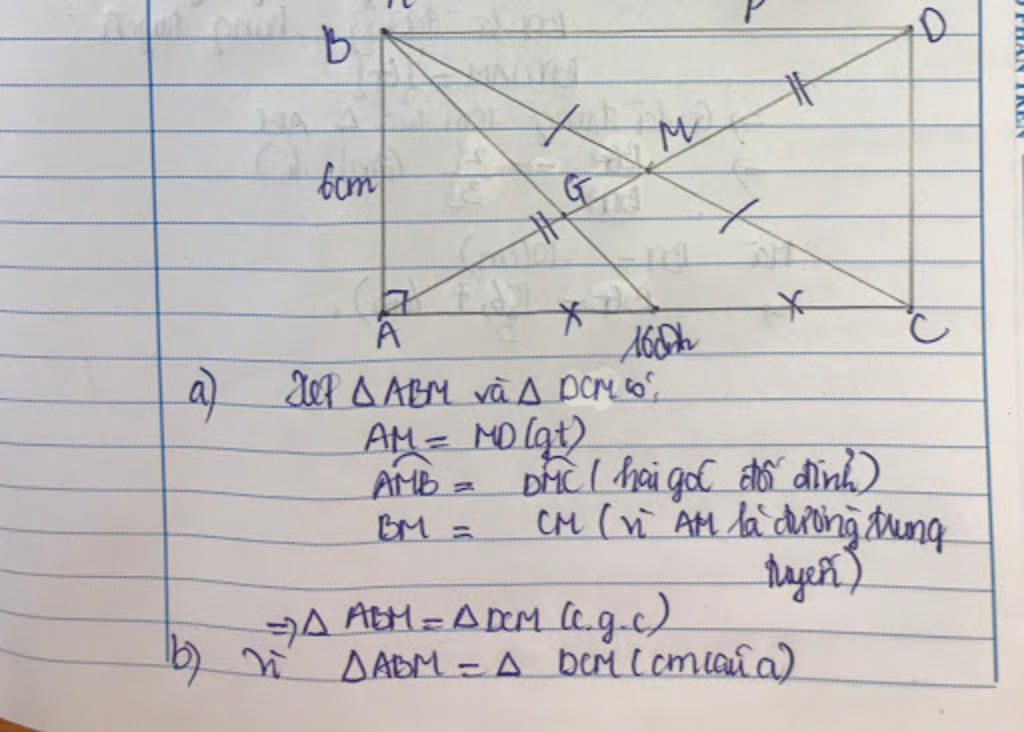 B
D
M
6cm
G
A
C
a) Xét △ ABM và △ DCM có:
AM = MD (gt)
AMB = DMC ( hai góc đối đỉnh )
BM = CM ( vì AM là đường trung
tuyến )
⇒ △ ABM = △ DCM (c.g.c)
b) Vì △ ABM = △ DCM ( cm câu a )